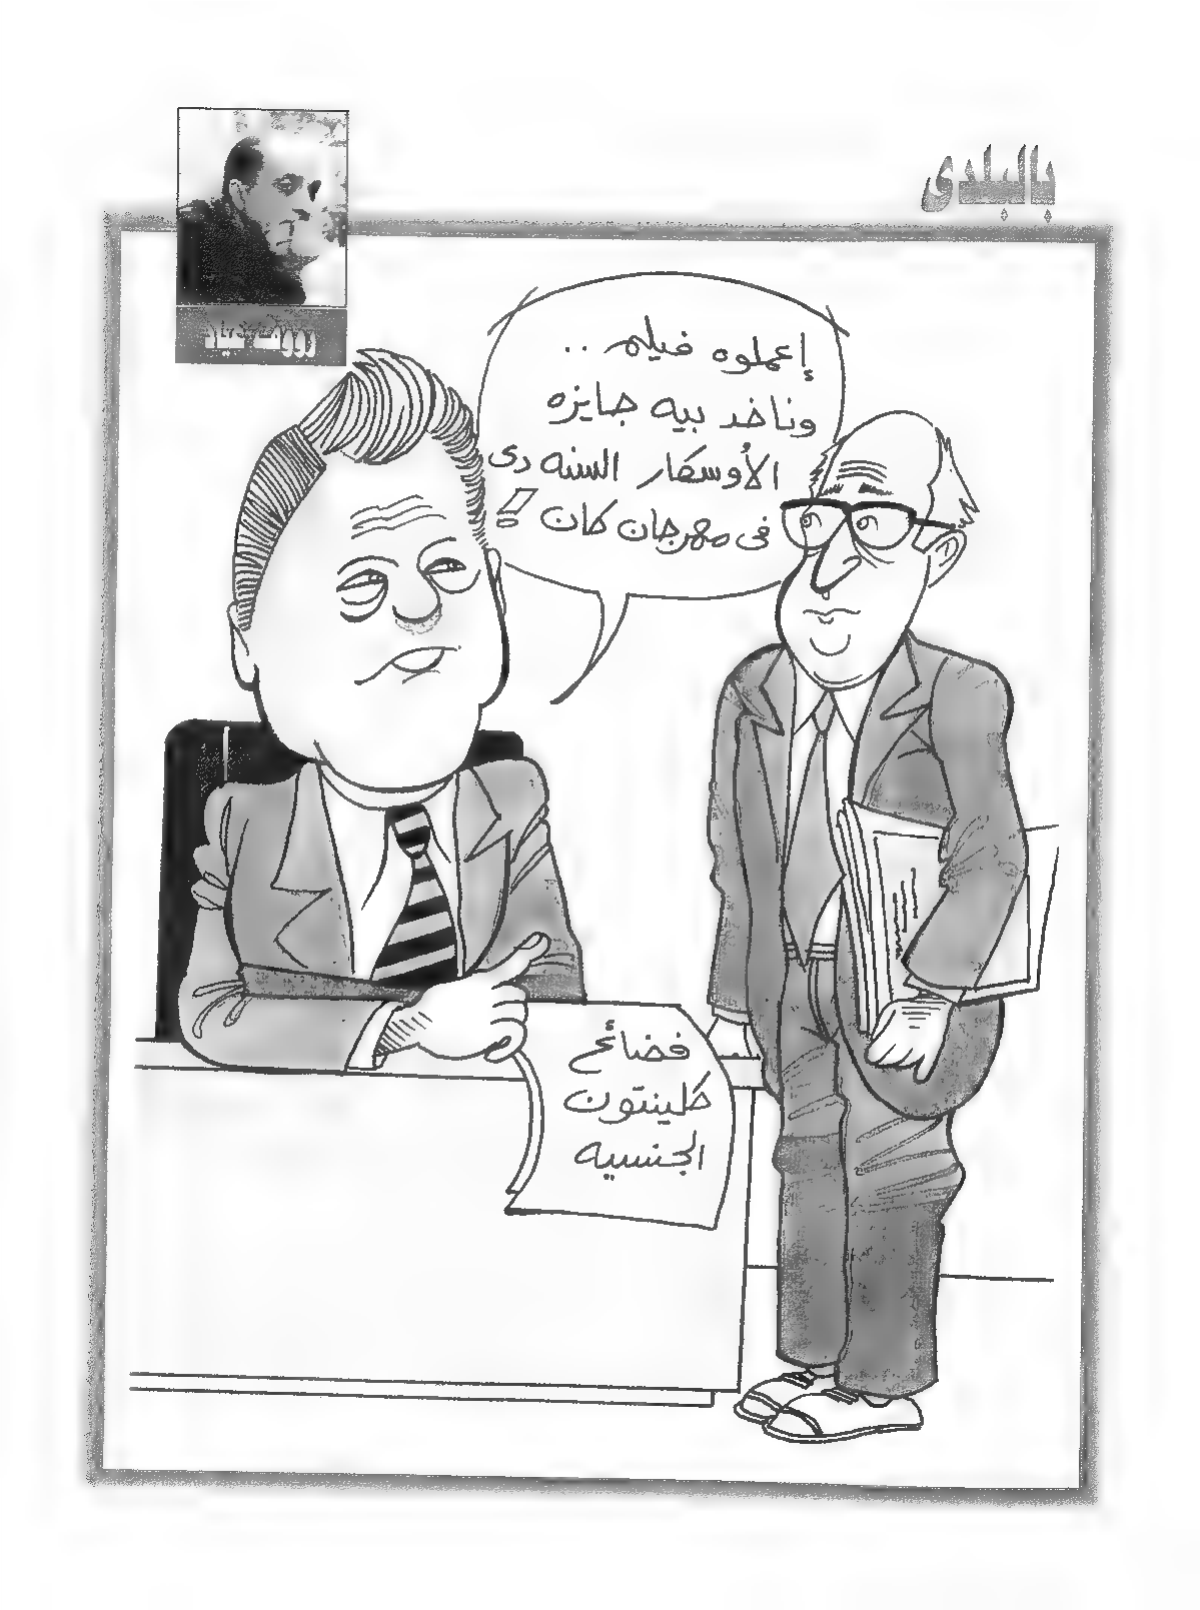 بالبلدى
رؤوف عياد
إعملوه فيلم ..
وناخد بيه جايزه
الأوسكار السنه دى
فى مهرجان كان !
فضائح
كلينتون
الجنسيه